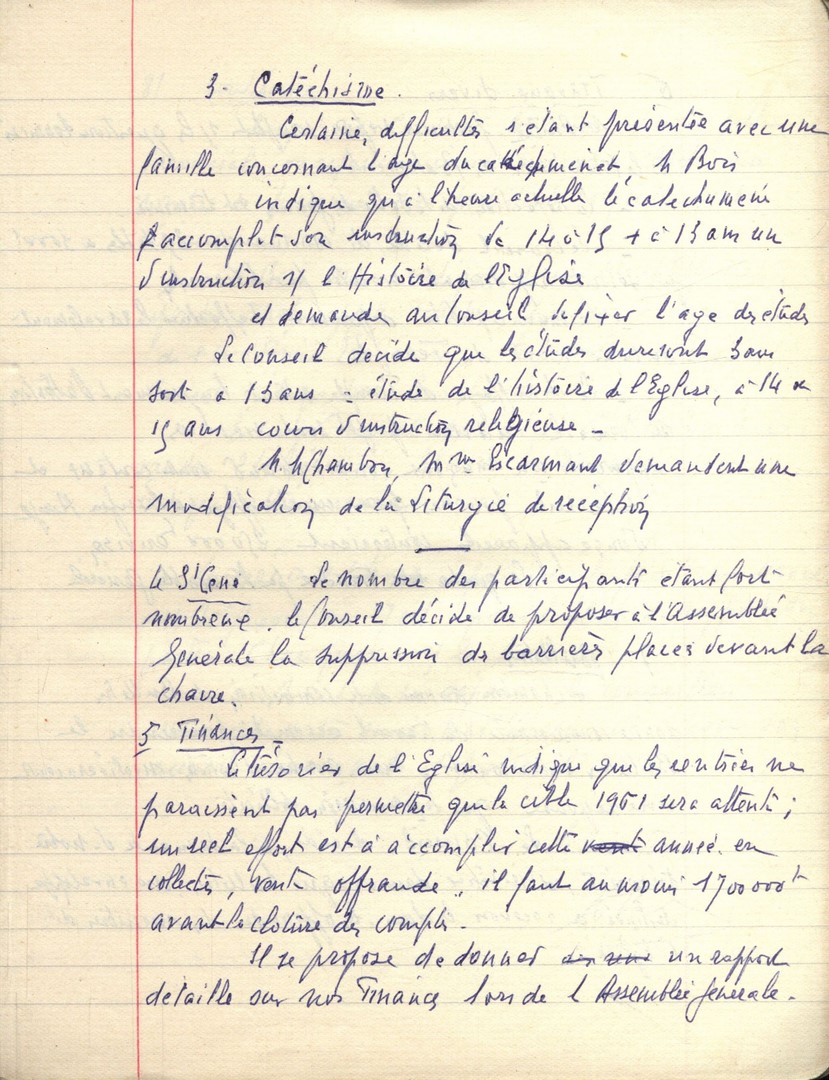 3- Catéchisme.
Certaines difficultés s'étant présentée avec une
famille concernant l'age du catéchuménat, M Bois
indique qu'à l'heure actuelle le catechumene
accomplit son instruction de 14 à 15 + à 13 ans un
d'instruction s/ l'Histoire de l'Eglise
et demande au Conseil de fixer l'age des études
Le Conseil décide que les études dureront 3 ans
soit à 13 ans : étude de l'histoire de l'Eglise, à 14 et
15 ans cours d'instruction religieuse -
M M Chambon, Mme Escarmant demandent une
modification de la Liturgie de reception
Le nombre des participants étant fort
nombreux. le Conseil décide de proposer à l'Assemblée
Générale la suppression des barrières places devant la
chaire.
5 Finances -
Le trésorier de l'Eglise indique que les rentrées ne
paraissent pas permettre que la cible 1961 sera atteinte ;
un réel effort est à accomplir cette année. en
collectes, vente offrande.. il faut au moins 1700 000 f
avant la cloture des comptes.
Il se propose de donner un rapport
détaillé sur nos Finances lors de l'Assemblée générale.